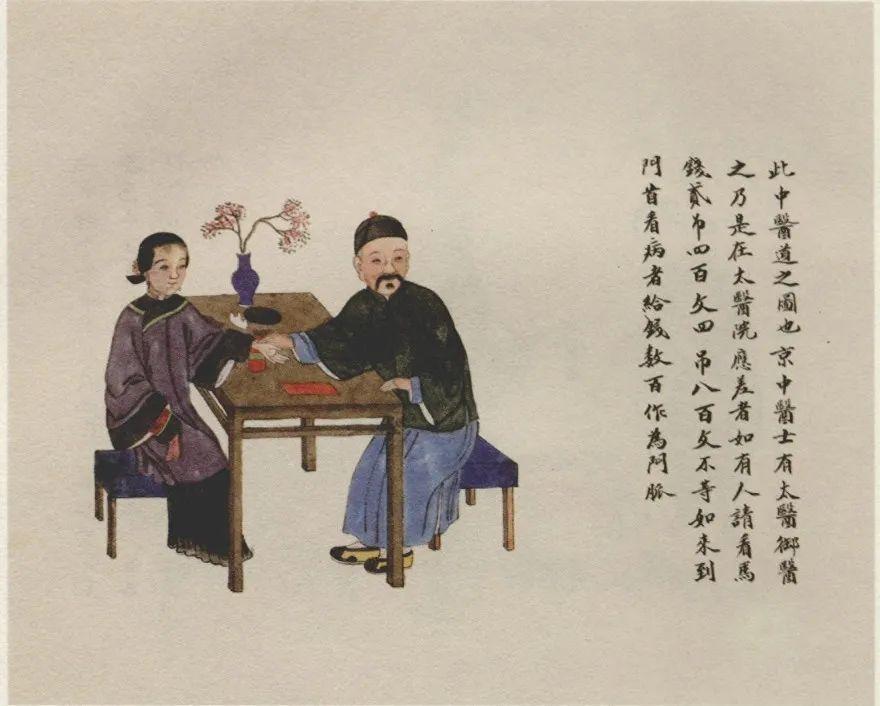 此中醫道之圖也京中醫士有太醫御醫
之乃是在太醫院應差者如有人請看馬
錢貳吊四百文四吊八百文不等如来到
門首看病者給錢数百作為門脈